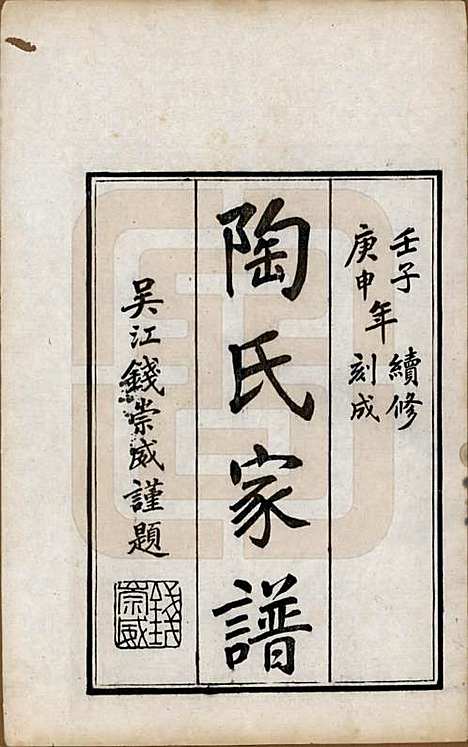 壬子
庚申
年
續修
刻成
陶氏家譜
吳江錢崇威謹題
錢崇威